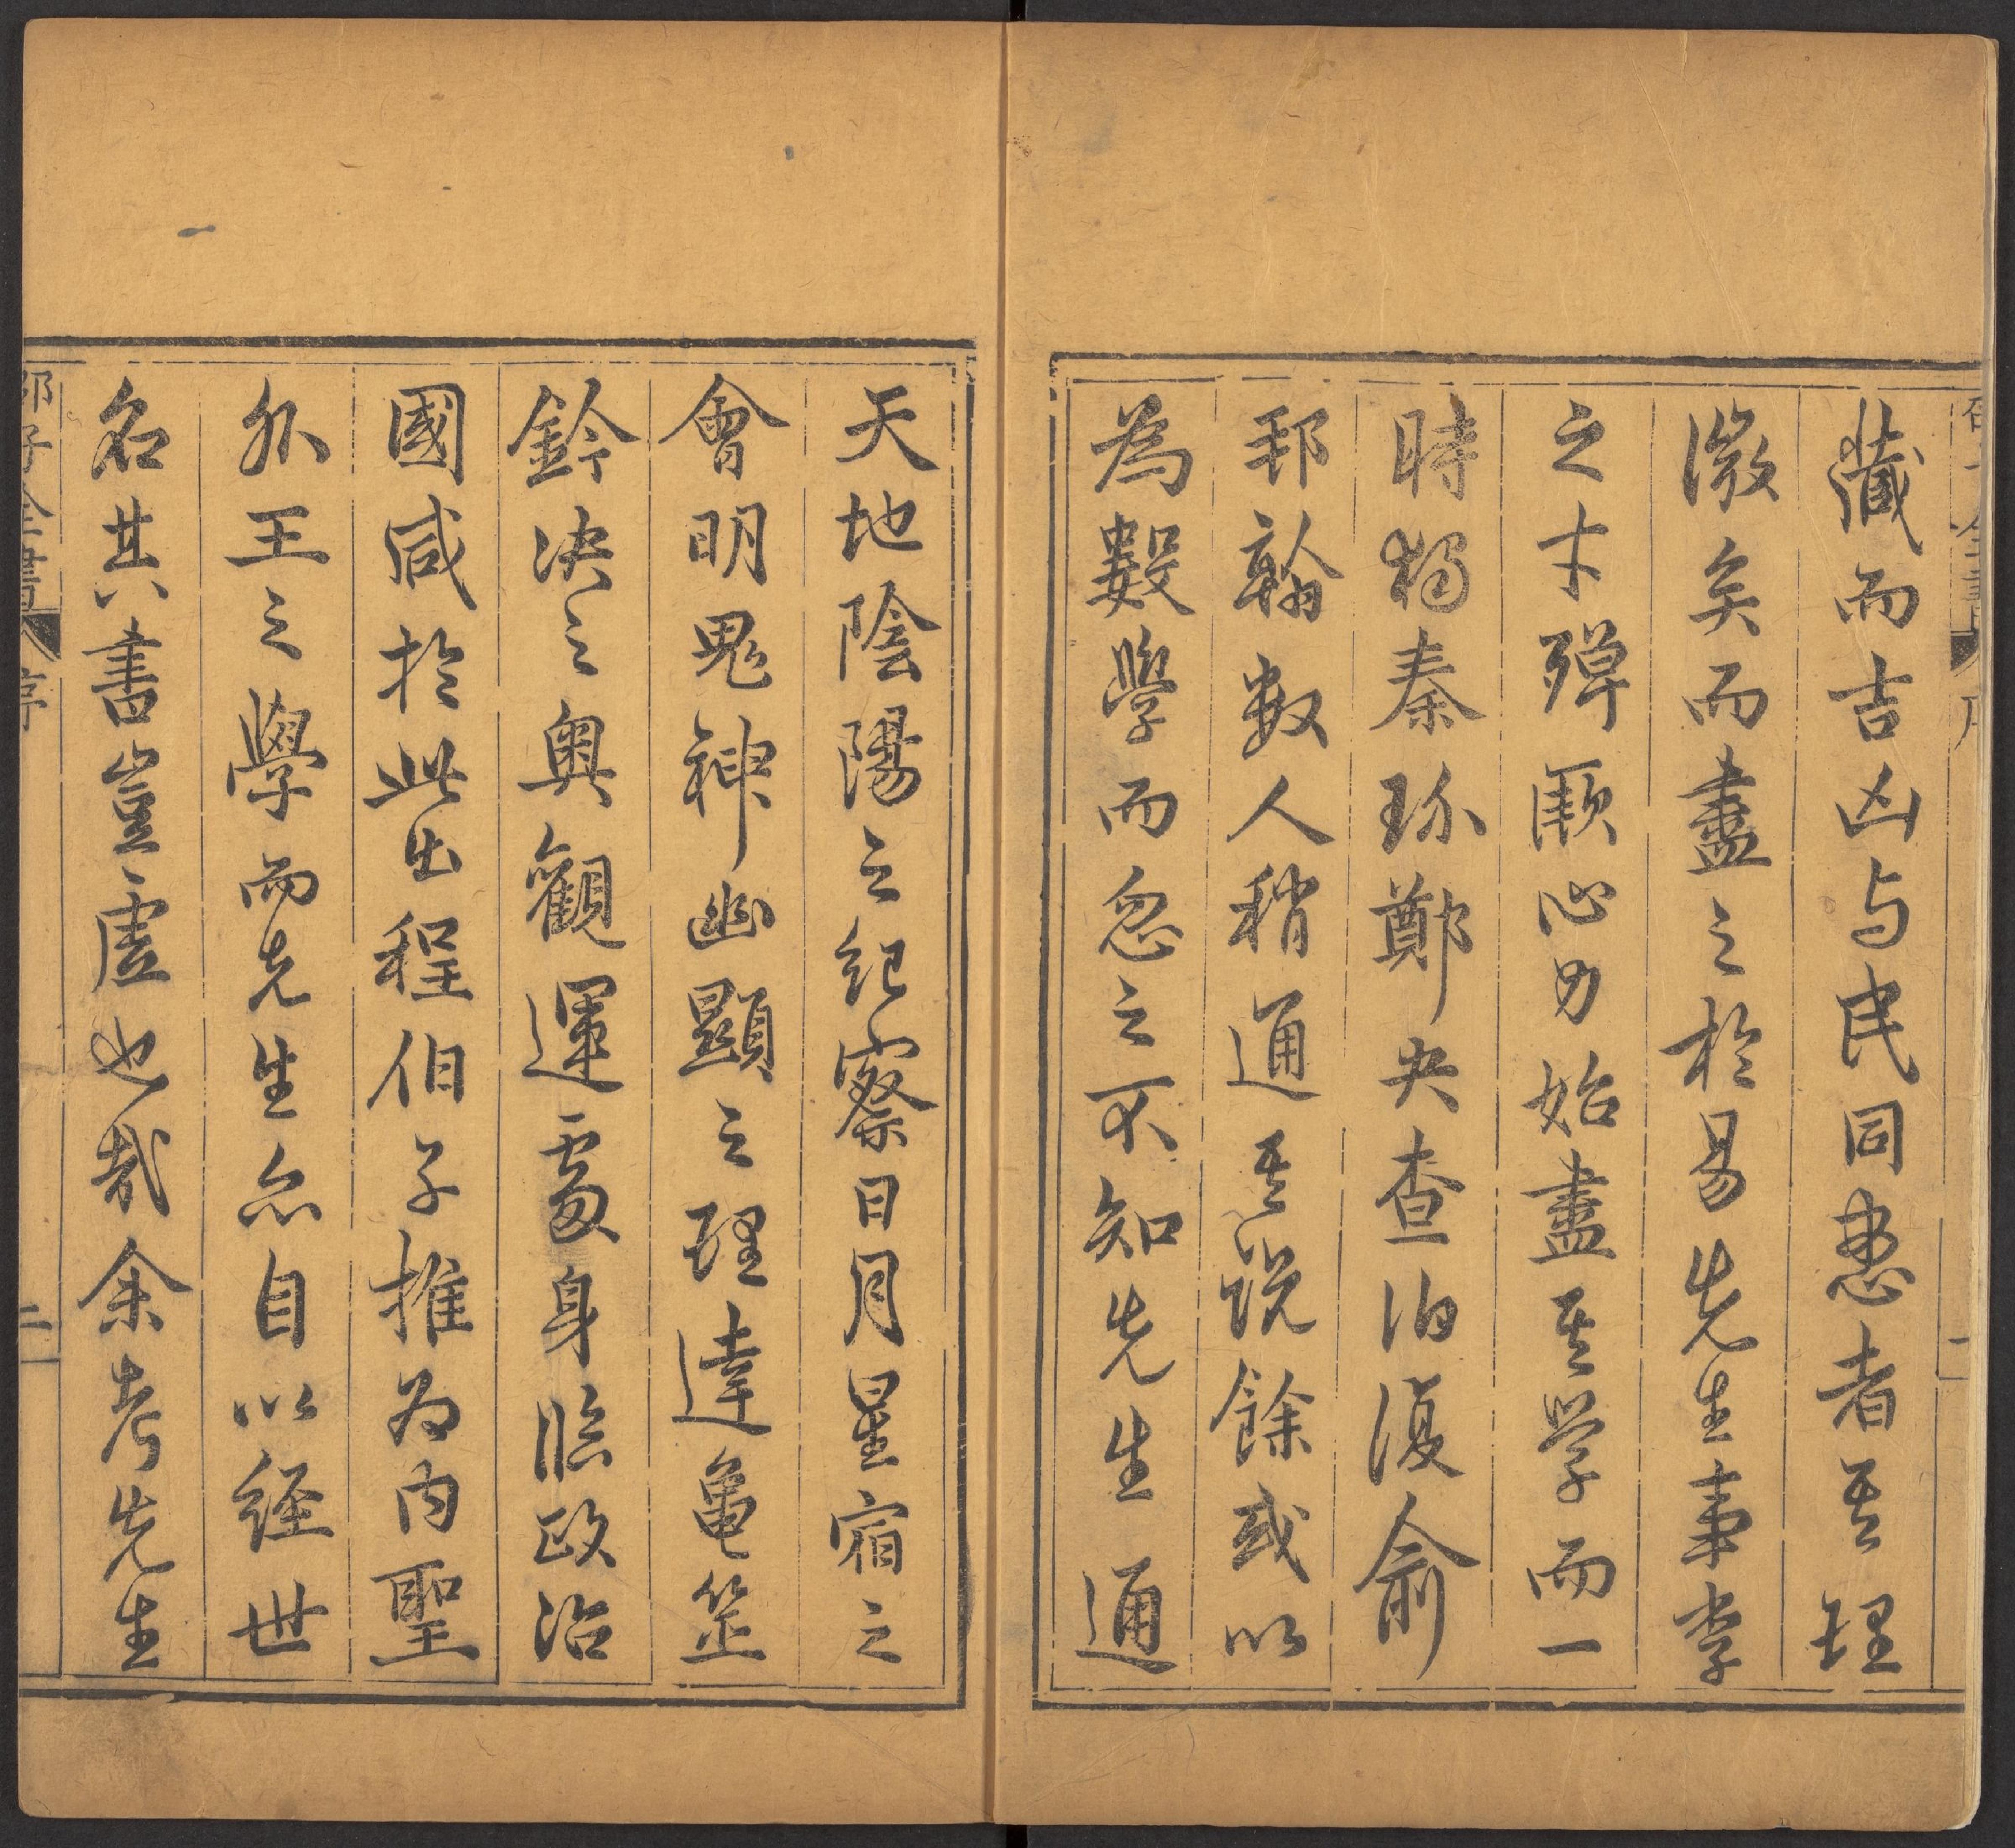 藏而吉凶与民同患者其理
微矣而盡之於易先生事李
之才殫厥心力始盡其学而一
時獨秦玠鄭夬查伯復俞
邦翰數人稍通其說餘或以
為數學而忽之不知先生通
天地陰陽之紀察日月星宿之
會明鬼神幽顯之理達龜筮
鈐決之奥觀運處身臨政治
國咸於此出程伯子推为内聖
外王之學而先生亦自以経世
名其書豈虛也哉余考先生
邵子全書 序 二